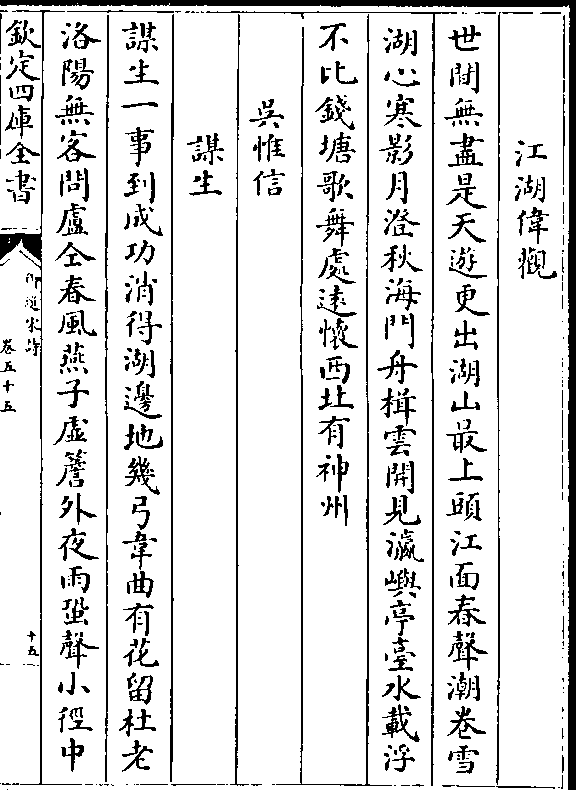 江湖偉觀
世間無盡是天遊更出湖山最上頭江面春聲潮卷雪
湖心寒影月澄秋海門舟楫雲開見瀛嶼亭臺水載浮
不比錢塘歌舞處遠懷西北有神州
吳惟信
謀生
謀生一事到成功消得湖邊地幾弓韋曲有花留杜老
洛陽無客問盧仝春風燕子虛簷外夜雨蛩聲小徑中
欽定四庫全書
御選宋詩
卷五十五
十五